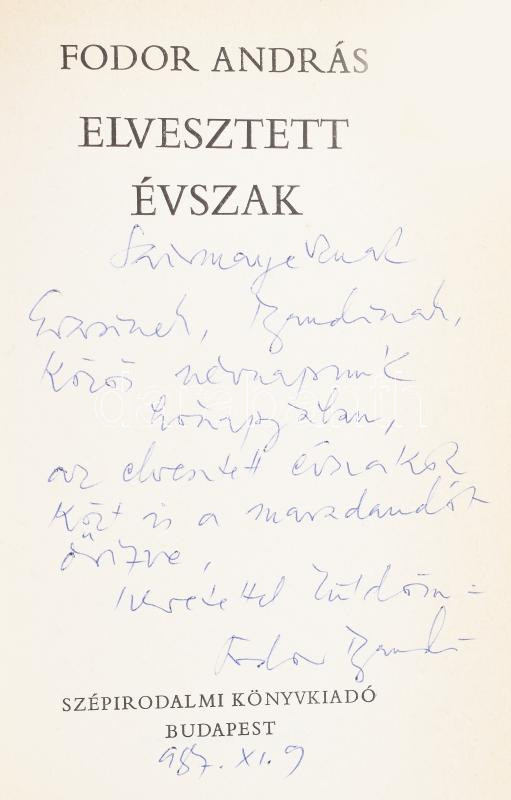 FODOR ANDRÁS
ELVESZTETT
ÉVSZAK
Szirmayéknak
Erzsinek, Bandinak,
Közös névnapunk
hónapjában,
az elvesztett évszakok
közt is a maradandót
őrizve,
szeretettel küldöm –
Fodor Bandi
SZÉPIRODALMI KÖNYVKIADÓ
BUDAPEST
987. XI. 9